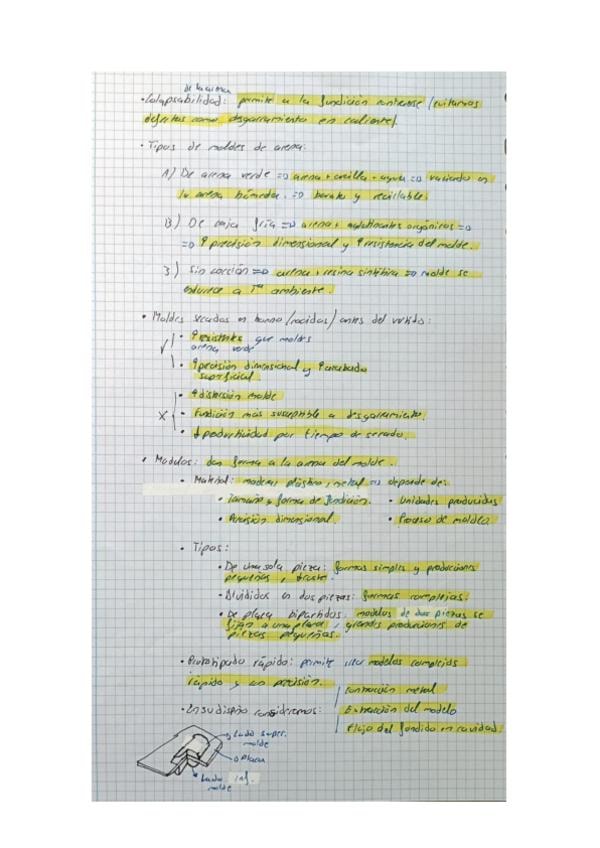 de la arena
• Colapsabilidad: permite a la fundición contraerse (evitamos
defectos como desgarramiento en caliente)
• Tipos de moldes de arena:
1) De arena verde => arena + arcilla + agua => vaciado en
la arena húmeda. => barato y reciclable.
2) De caja fría => arena + aglutinantes orgánicos =>
=> ↑ precisión dimensional y ↑ resistencia del molde.
3) Sin cocción => arena + resina sintética => molde se
endurece a Tª ambiente.
• Moldes secados en horno (cocidos) antes del vertido:
✓ • ↑ resistentes que moldes
arena verde
• ↑ precisión dimensional y ↑ acabado
superficial.
• ↑ distorsión molde
x • Fundición más susceptible a desgarramiento.
• ↓ productividad por tiempo de secado.
• Modelos: dan forma a la arena del molde.
• Material: madera, plástico, metal => depende de:
• Tamaño y forma de fundición. • Unidades producidas
• Precisión dimensional. • Proceso de moldeo
• Tipos:
• De una sola pieza: formas simples y producciones
pequeñas,
• Divididos en dos piezas: formas complejas.
• De placa bipartidos: modelos de dos piezas se
fijan a una placa, grandes producciones de
piezas pequeñas.
• Prototipado rápido: permite crear modelos complejos
rápido y con precisión.
Contracción metal
• En su diseño consideremos: Extracción del modelo
Flujo del fundido en cavidad.
Lado super.
molde
Placa
Lado inf.
molde